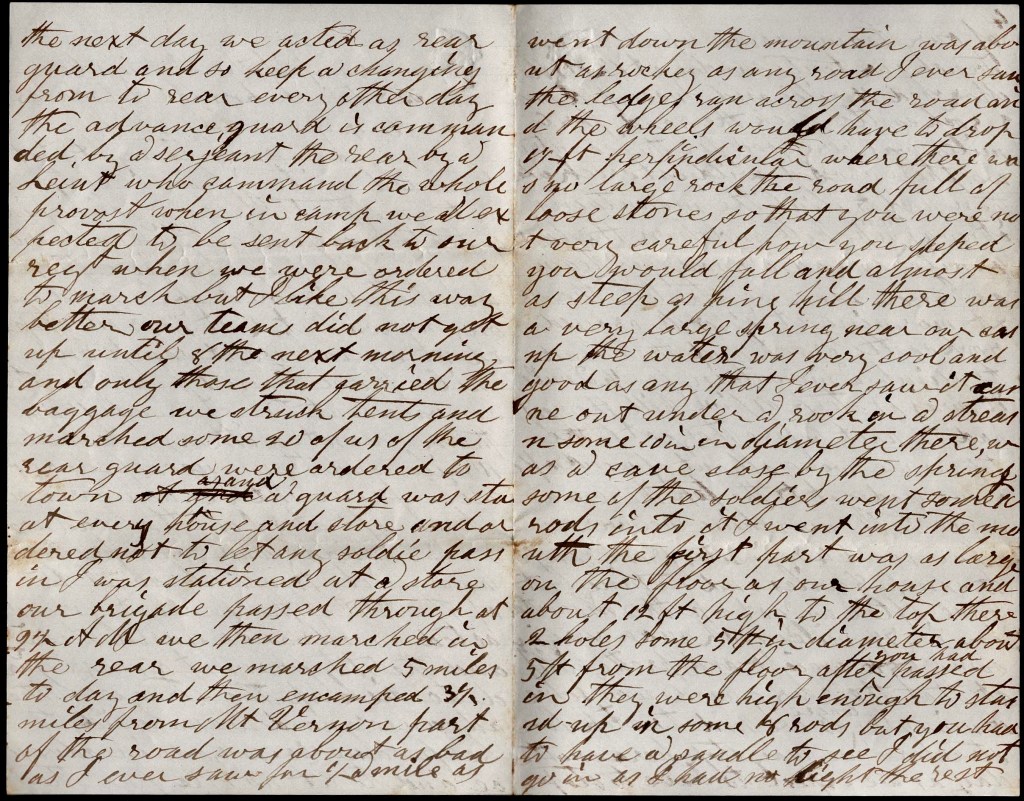 the next day we acted as rear
guard and so keep a changing
from to rear every other day
the advance guard is comman
ded, by a sergeant the rear by a
Leint who command the whole
provost when in camp we all ex
pected to be sent back to our
regt when we were ordered
to march but I like this way
better our teams did not get
up until 8 the next morning
and only those that carried the
baggage we struck tents and
marched some 20 of us of the
rear guard were ordered to
town at and a guard was sta
at every house and store and or
dered not to let any soldie pass
in I was stationed at a store
our brigade passed through at
9½ A M we then marched in
the rear we marched 5 miles
to day and then encamped 3/4
mile from Mt Vernon part
of the road was about as bad
as I ever saw for 1/2 mile as
went down the mountain was abo
ut as rockey as any road I ever saw
the ledge, ran across the road an
d the wheels would have to drop
ft perpindicular where there wa
s no large rock the road full of
loose stones so that you were no
t very careful how you steped
you would fall and almost
as steep as pine hill there was
a very large spring near our cam
np the water was very cool and
good as any that I ever saw it can
ne out under a rock in a stream
n some 10 in in diameter there, w
as a cave close by the spring
some of the soldiers went some
rods into it I went into the mo
uth the first part was as large
on the floor as our house and
about 12 ft high to the top there
2 holes some 5 ft in diameter about
5 ft from the floor after you had passed
in they were high enough to stan
d up in some 8 rods but you had
to have a candle to see I did not
go in as I had no light the rest